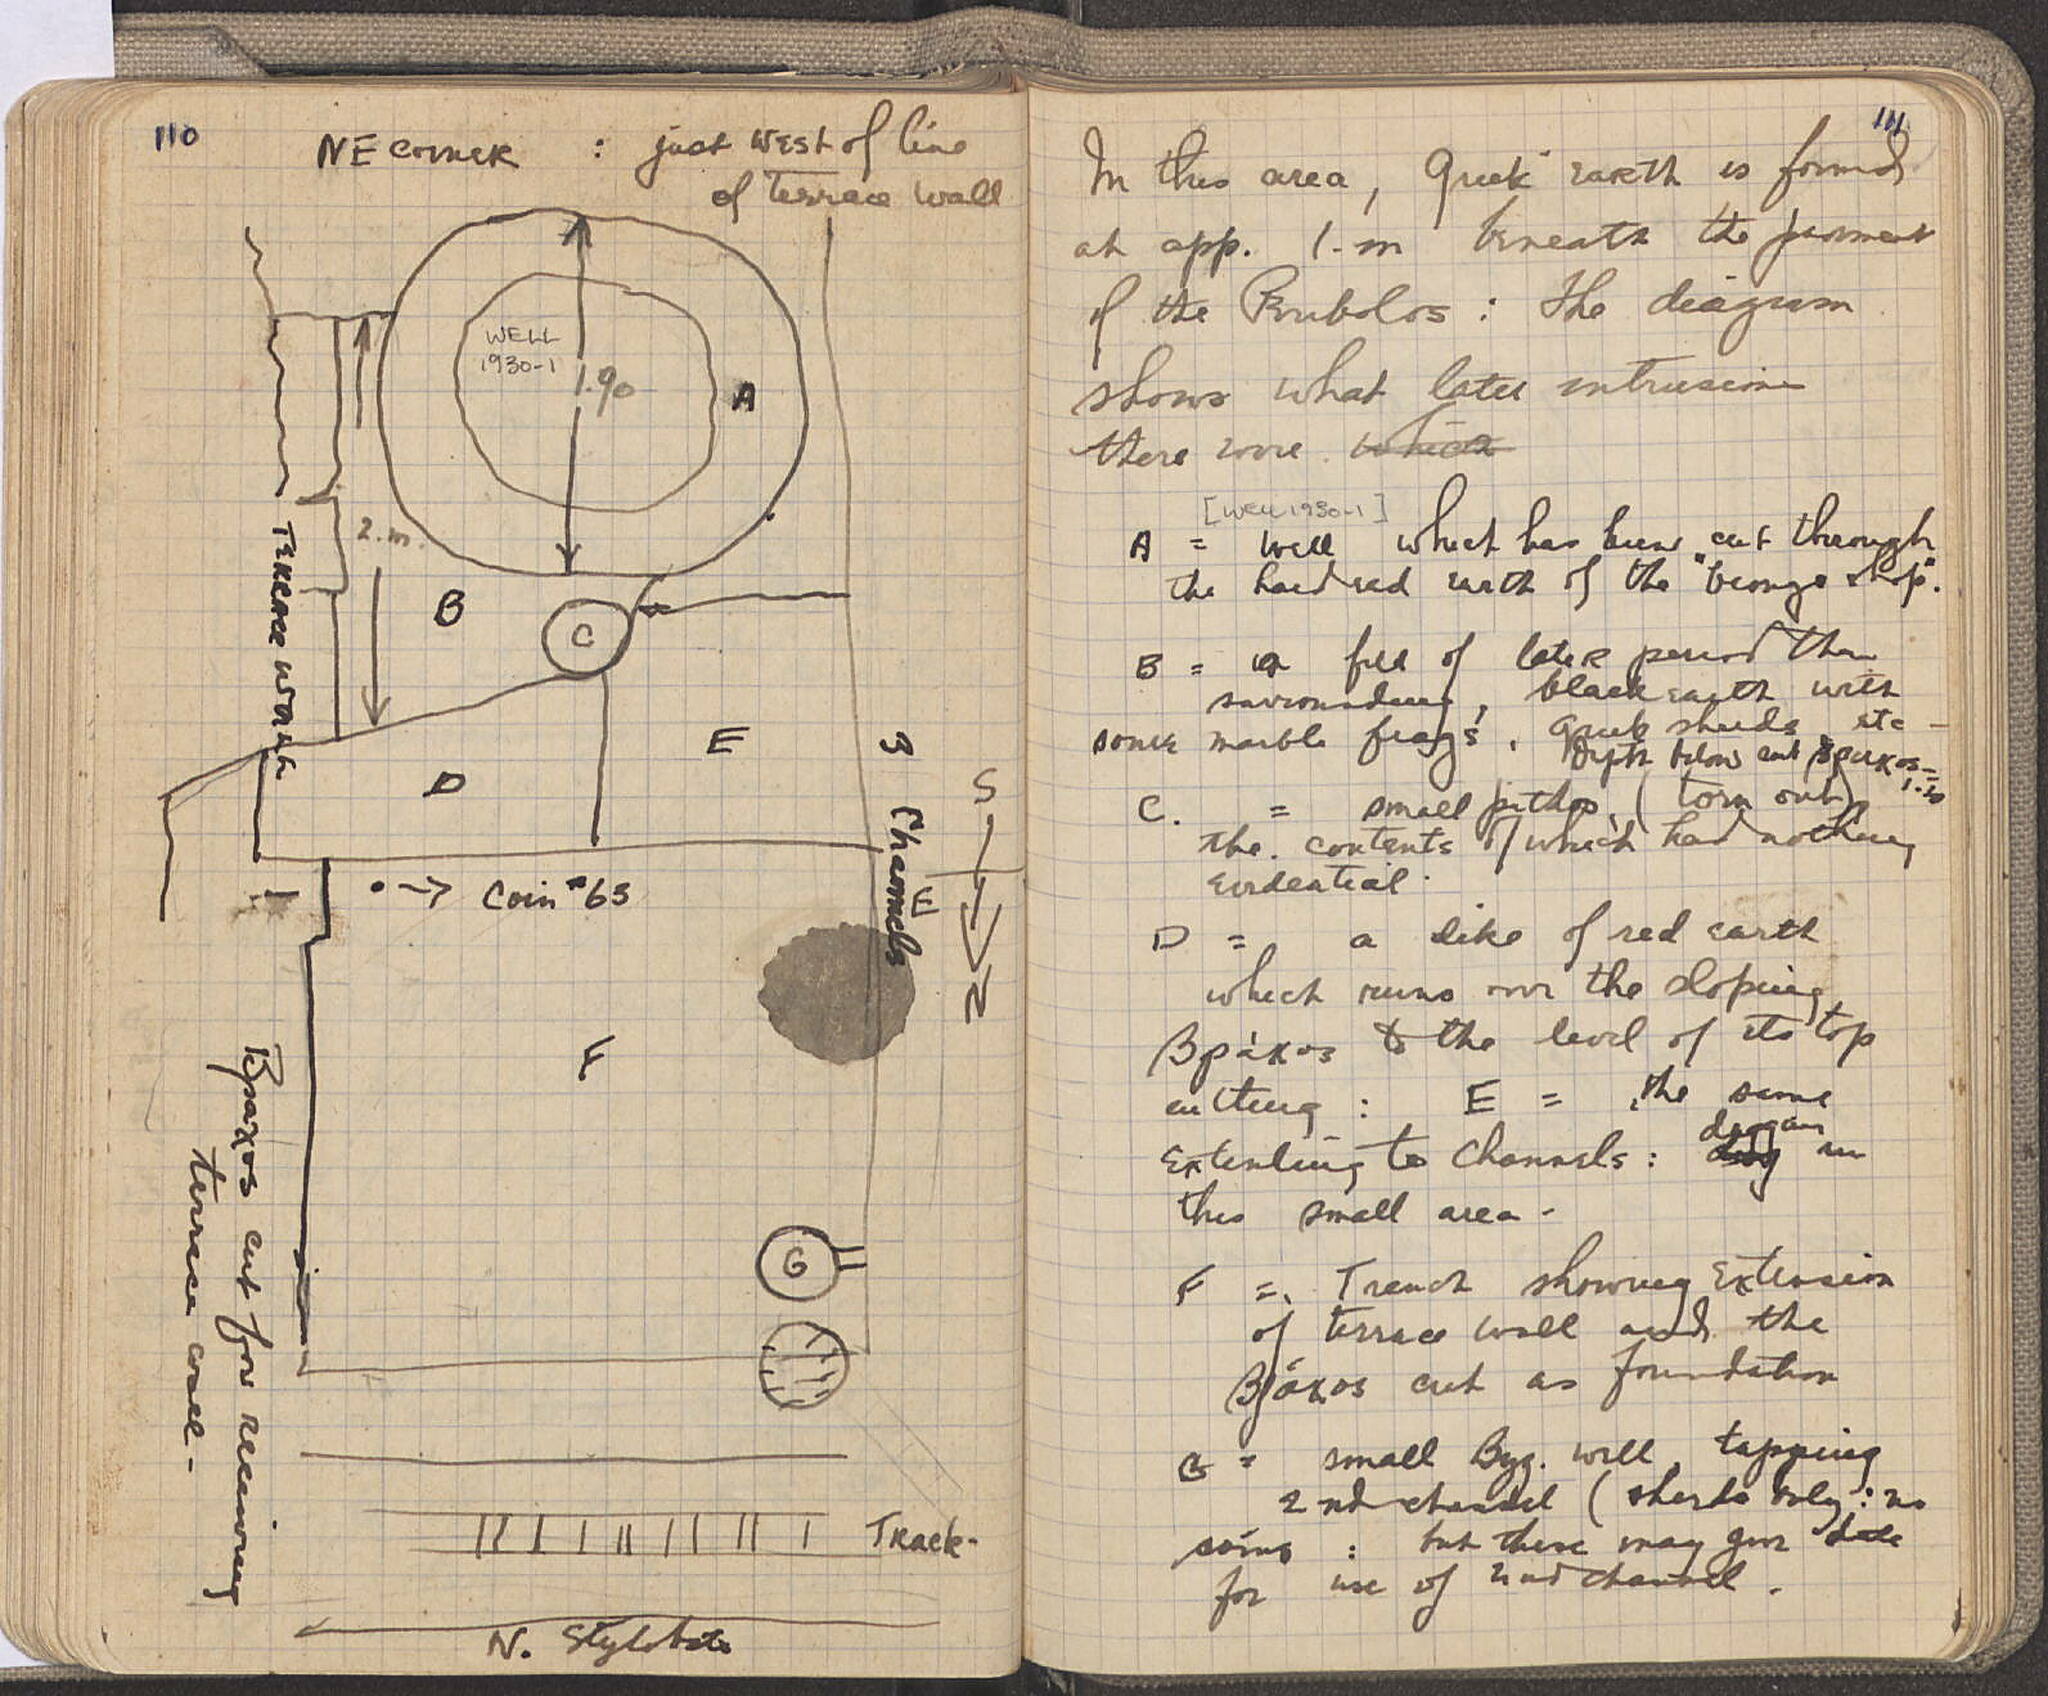 110
NE corner : just west of line
of terrace wall
WELL
1930-1
1.90
A
2.m.
Terrace wall
B
C
D
E
3 Channels
S
E
N
! •→ Coin #63
F
Βραχος cut for receiving
terrace wall -
G
Track -
N. Stylobate
111
In this area, Greek earth is found
at app. 1-m beneath the pavement
of the Peribolos : The diagram
shows what later intrusions
there were. which
[Well 1930-1]
A = Well which has been cut through
the hard red earth of the "bronze shop".
B = a fill of later period than
surrounding, black earth with
some marble frags, Greek sherds, etc -
Depth below cut βραχος =
1.20
C. = small pithos, (torn out)
the contents of which had nothing
evidential.
D = a dike of red earth
which runs over the sloping
Βράχος to the level of its top
cutting : E = the same
extending to Channels : dug in
this small area -
F = Trench showing Extension
of terrace wall and the
Βράχος cut as foundation
G = small Byz. well, tapping
2nd channel (sherds only : no
coins : but these may give date
for use of 2nd channel.